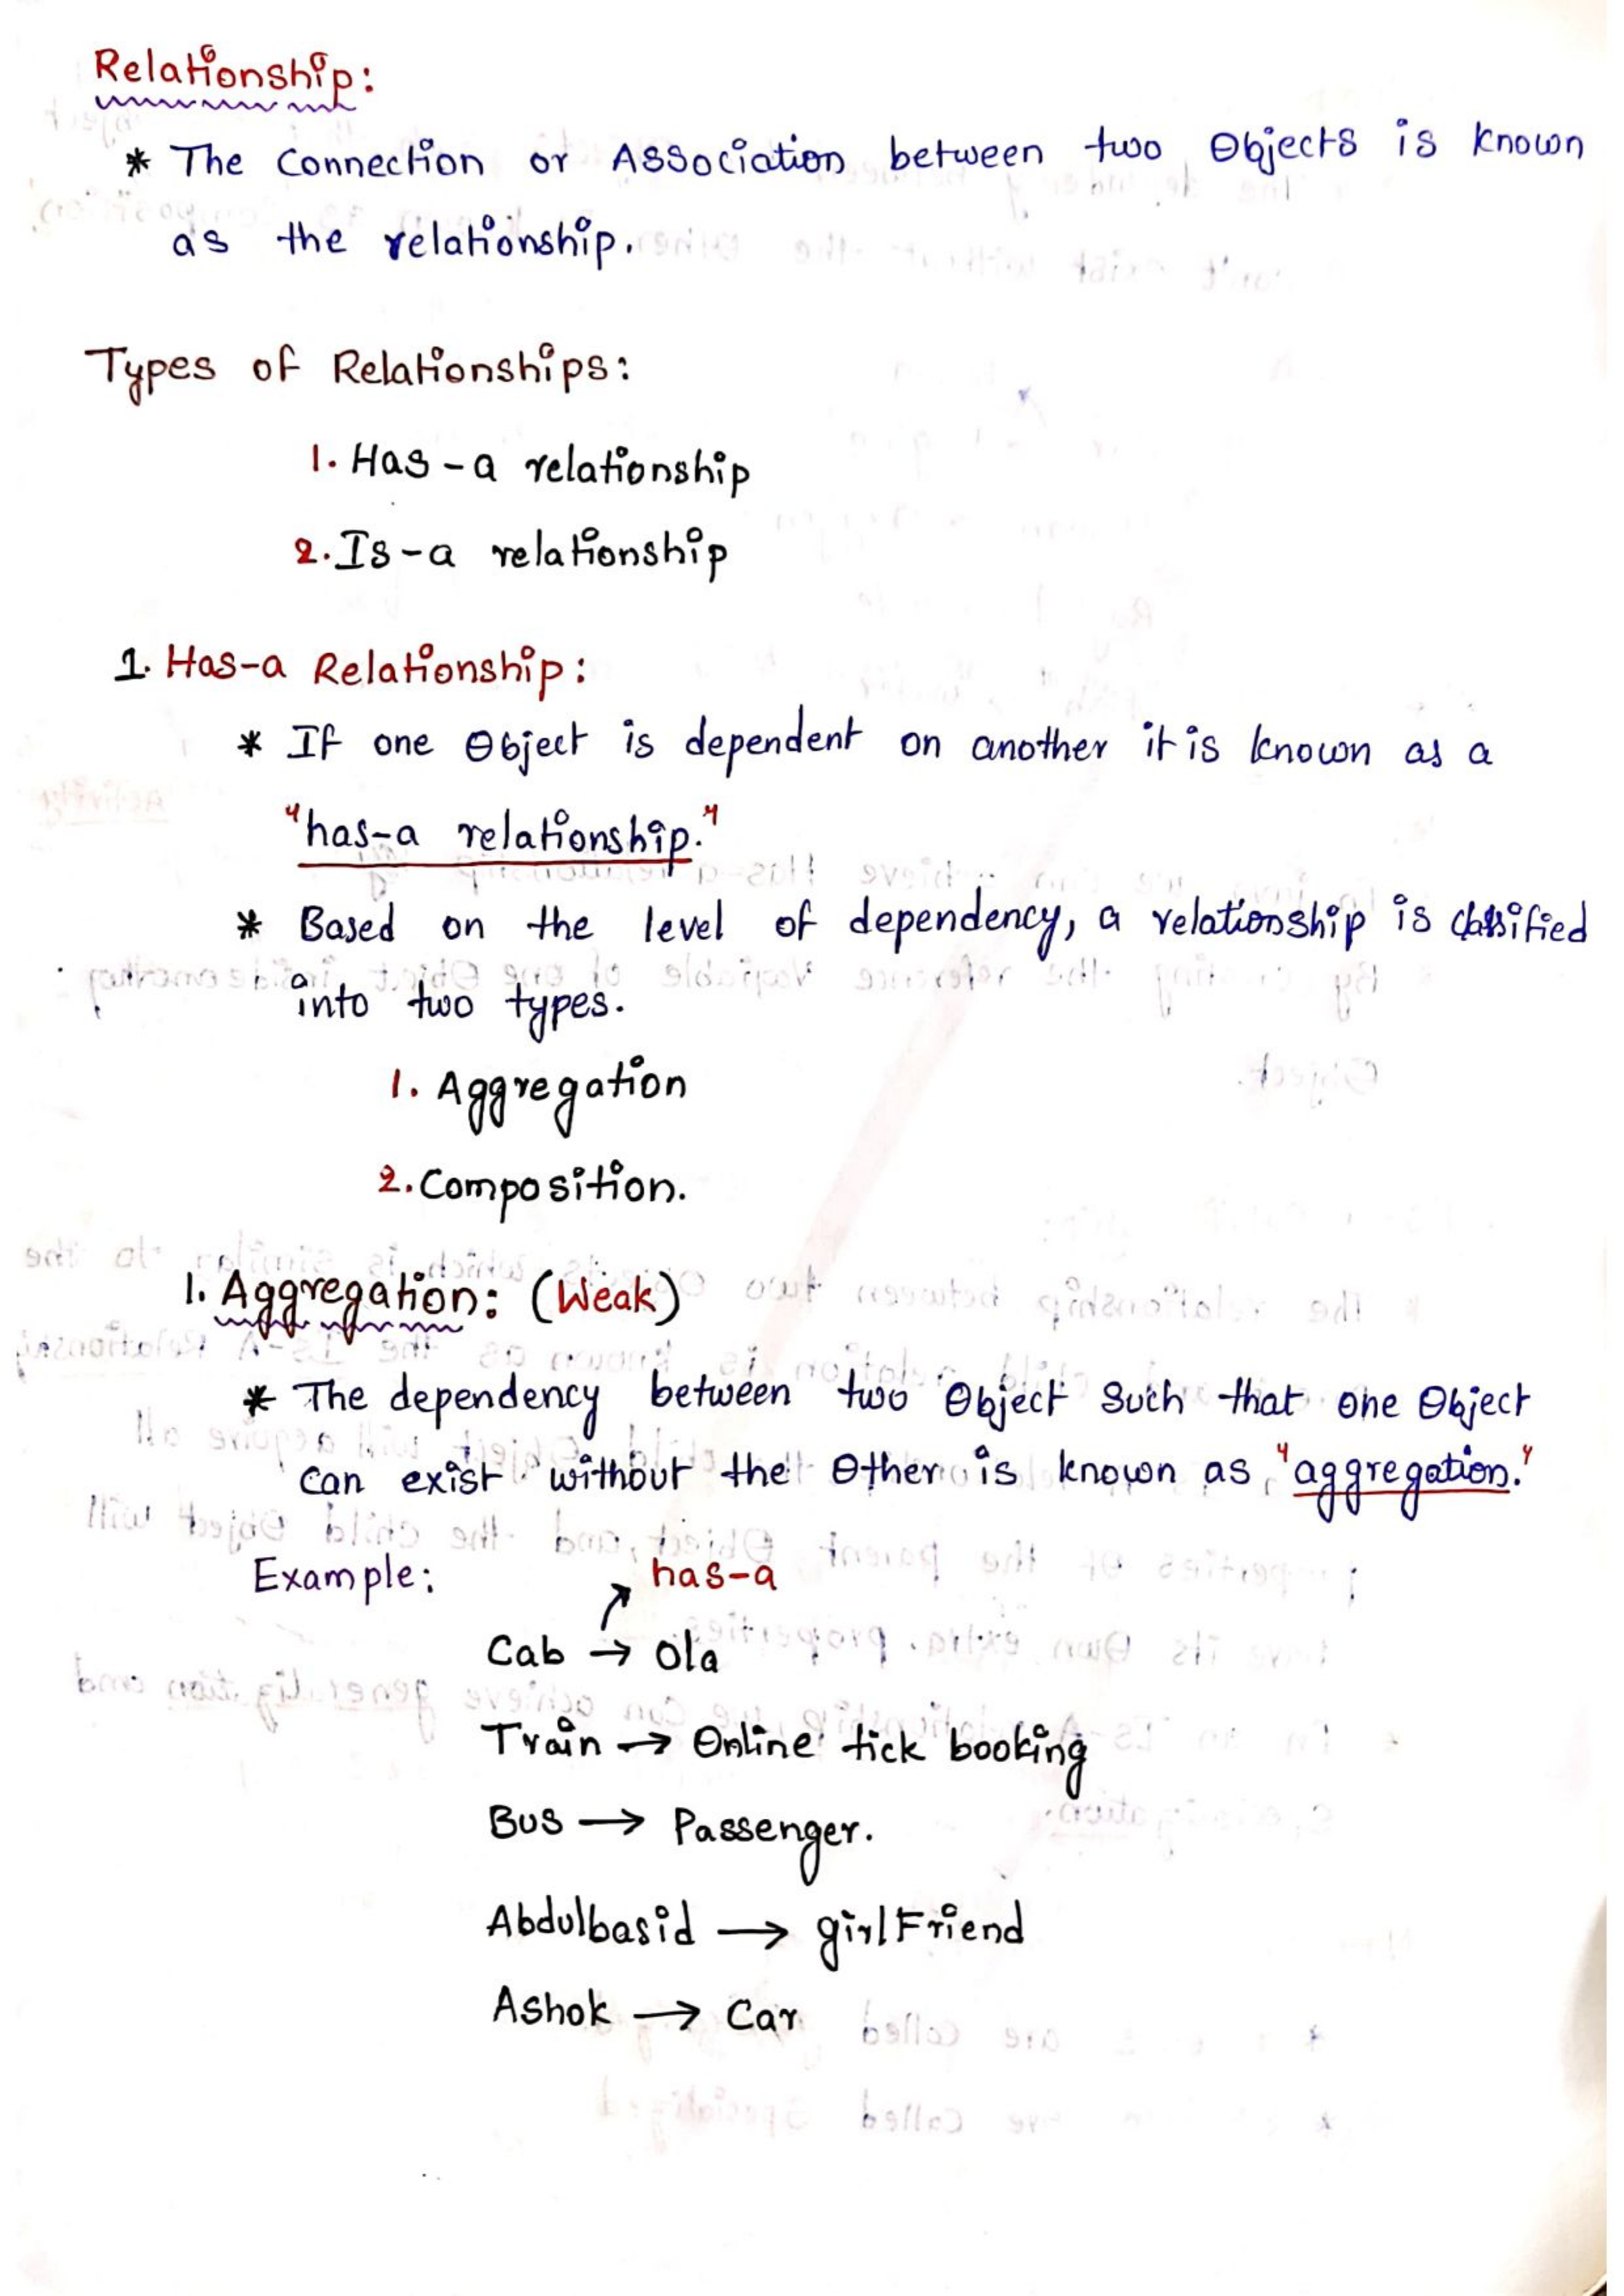 Relationship:
* The Connection or Association between two Objects is known
as the relationship.
Types of Relationships:
1. Has-a relationship
2. Is-a relationship
1. Has-a Relationship:
* If one Object is dependent on another it is known as a
"has-a relationship."
* Based on the level of dependency, a relationship is classified
into two types.
1. Aggregation
2. Composition.
1. Aggregation: (Weak)
* The dependency between two Object Such that one Object
Can exist without the Other is known as "aggregation."
Example:
has-a
Cab → Ola
Train → Online tick booking
Bus → Passenger.
Abdulbasid → girlFriend
Ashok → Car